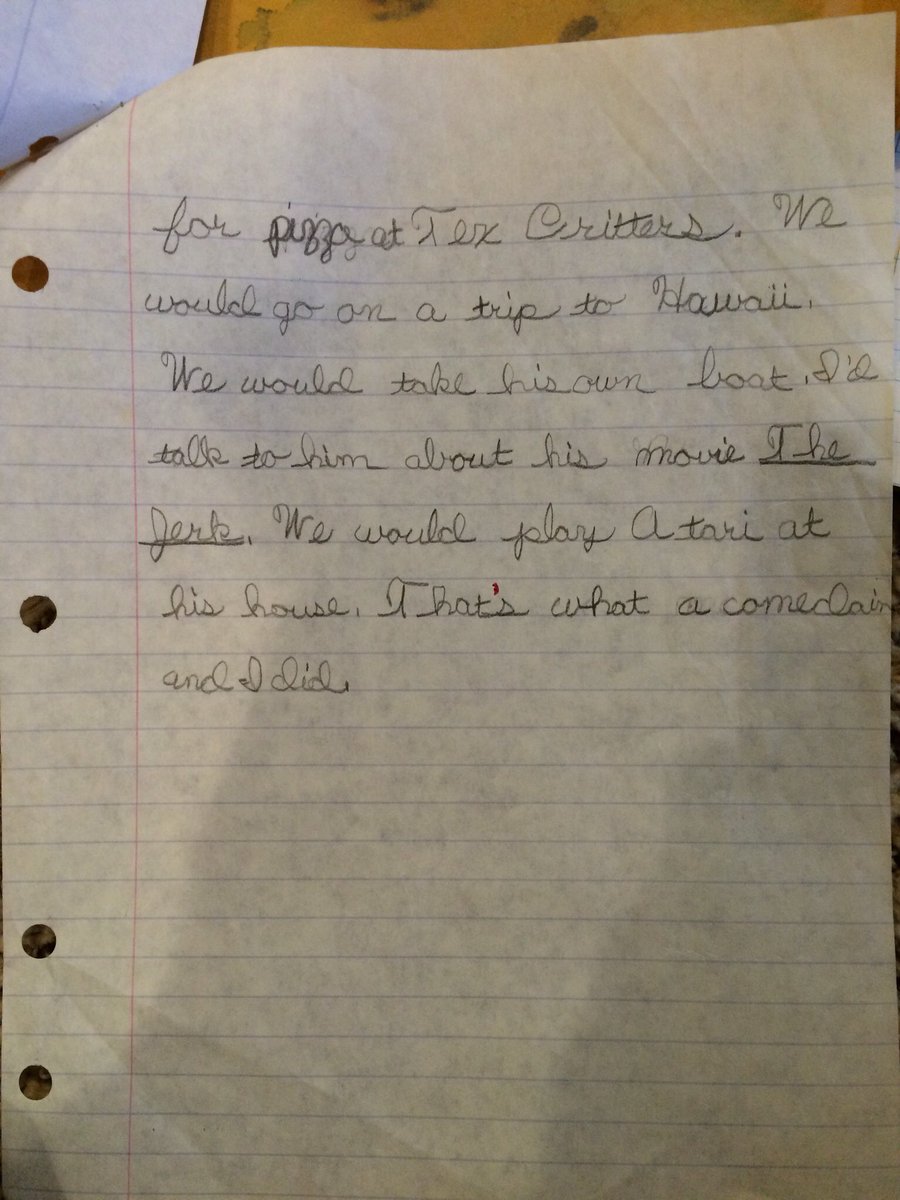 for pizza at Tex Critters. We
would go on a trip to Hawaii.
We would take his own boat. I'd
talk to him about his movie The
Jerk. We would play Atari at
his house. That's what a comedain
and I did.